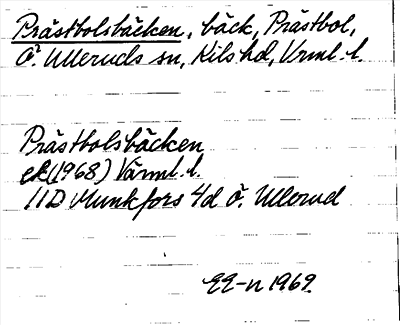 Prästbolsbäcken, bäck, Prästbol,
Ö. Ulleruds sn, Kils hd, Vrml. l.
Prästbolsbäcken
ek(1968) Värml. l.
11D Munkfors 4d Ö. Ullerud
EE-n 1969.